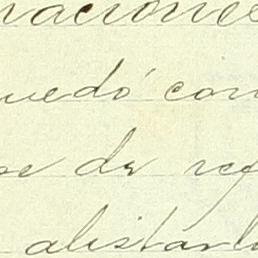 naciones
uedó con
se de reg
alistarlo